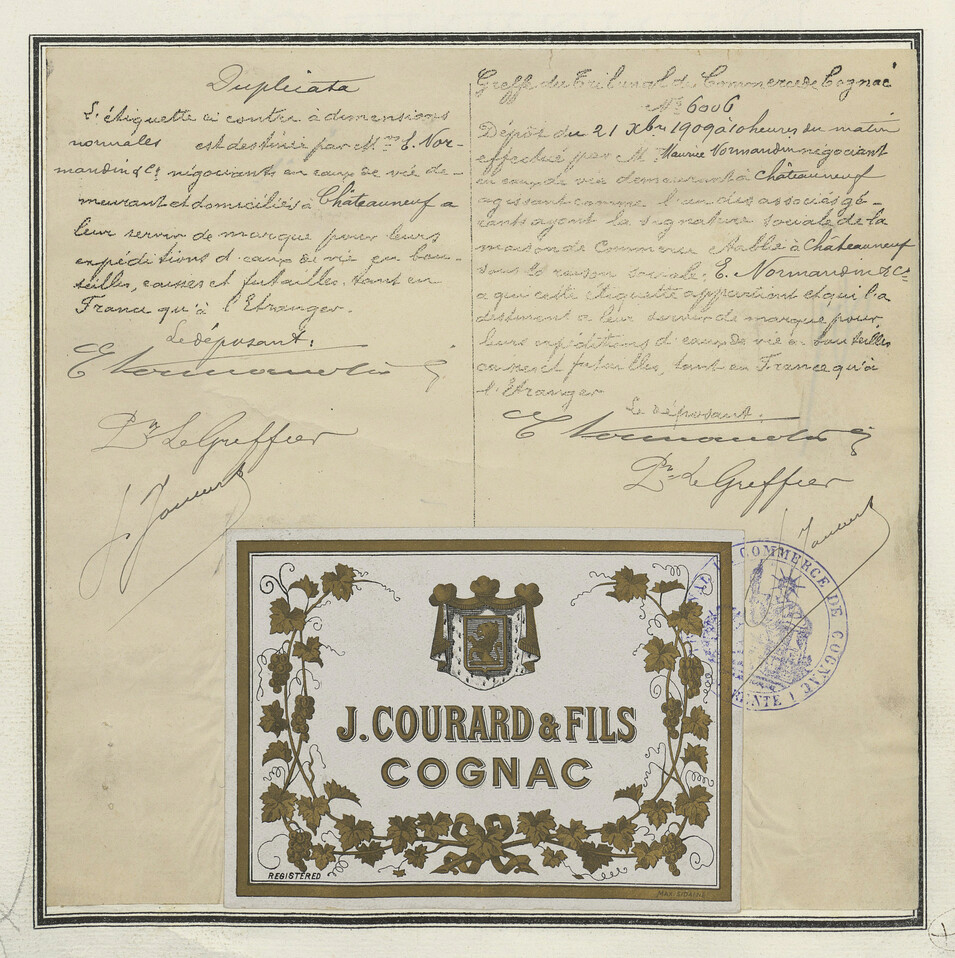 Duplicata
L'étiquette ci contre à dimensions
normales est destinée par M.rs E. Nor-
mandin & Cie négociants en eaux de vie de-
meurant et domiciliés à Châteauneuf a
leur servir de marque pour leurs
expéditions d'eaux de vie en bou-
teilles, caisses et futailles, tant en
France qu'à l'Etranger.
Le déposant:
E Normandin
Pr Le Greffier
Greffe du Tribunal de Commerce de Cognac
No 6006
Dépôt du 21 Xbre 1909 à 10 heures du matin
effectué par M. Maurice Normandin négociant
en eaux de vie demeurant à Châteauneuf
agissant comme l'un des associés gé-
rants ayant la signature sociale de la
maison de Commerce établie à Châteauneuf
sous la raison sociale: E. Normandin & Cie
a qui cette étiquette appartient et qui l'a
destinent a leur servir de marque pour
leurs expéditions d'eaux de vie en bouteilles
caisses et futailles, tant en France qu'à
l'Etranger
Le déposant.
E Normandin
Pr Le Greffier
COMMERCE DE COGNAC
J. COURARD & FILS
COGNAC
REGISTERED